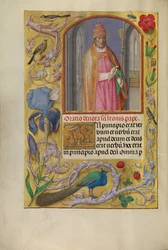 Oratio devota sci leonis pape.
In principio erat ver
bum et verbū erat
apud deum et deus
erat verbū. Hoc erat
in principio apud deū. Omnia p